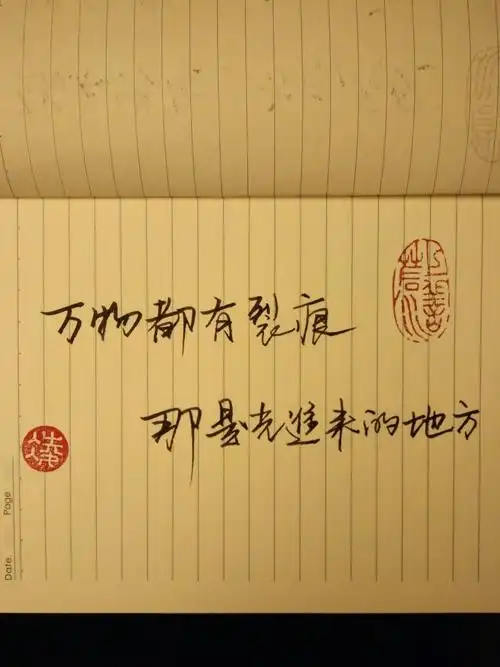 万物都有裂痕
那是光進来的地方
Page
Date.